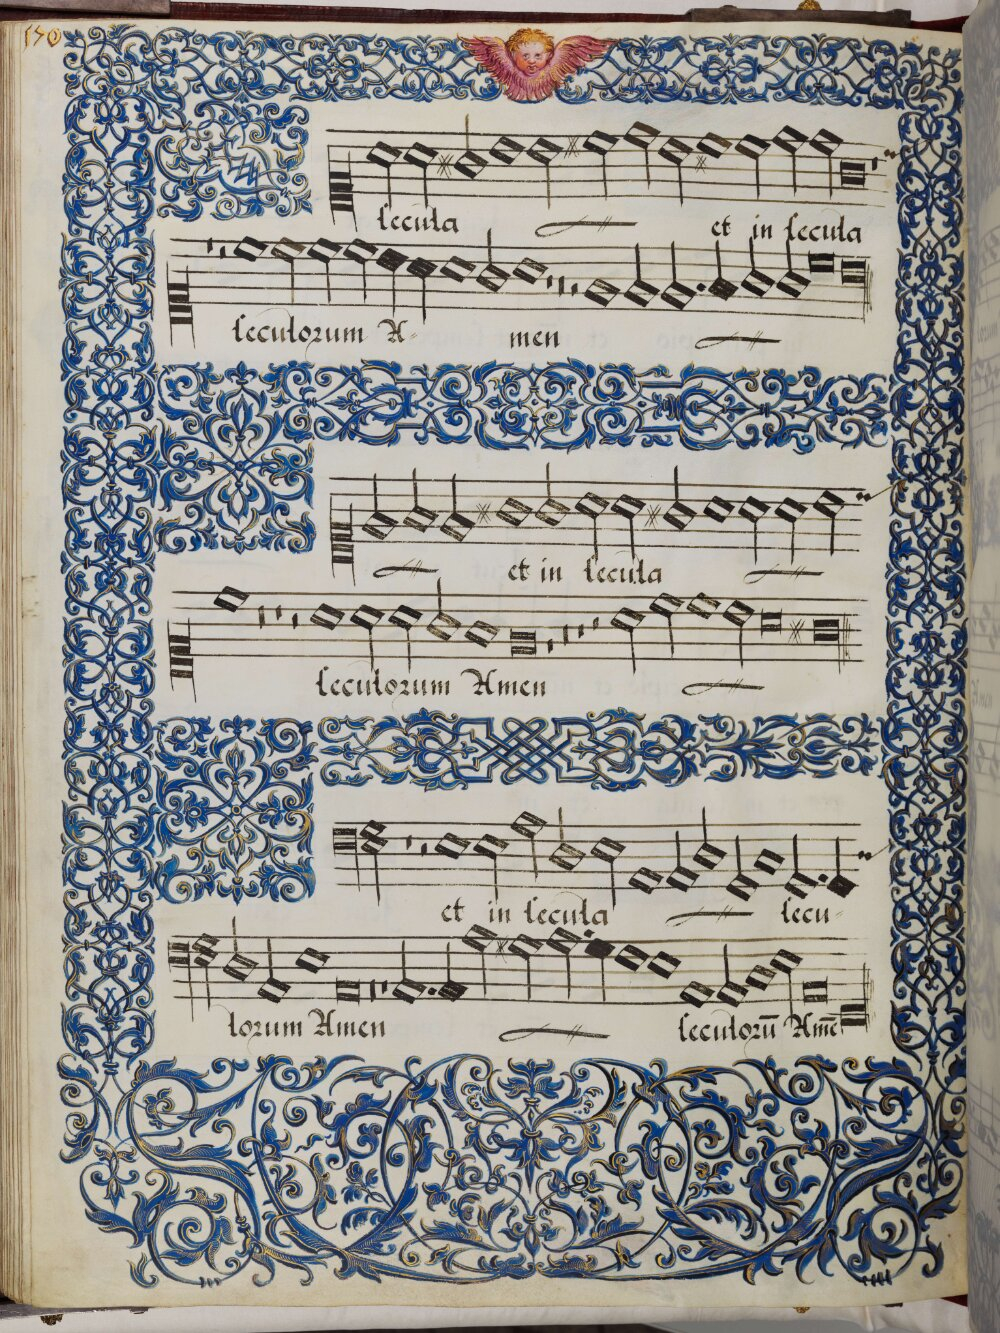 170
secula et in secula
seculorum A- men
et in secula
seculorum Amen
et in secula secu-
lorum Amen seculorū Amē